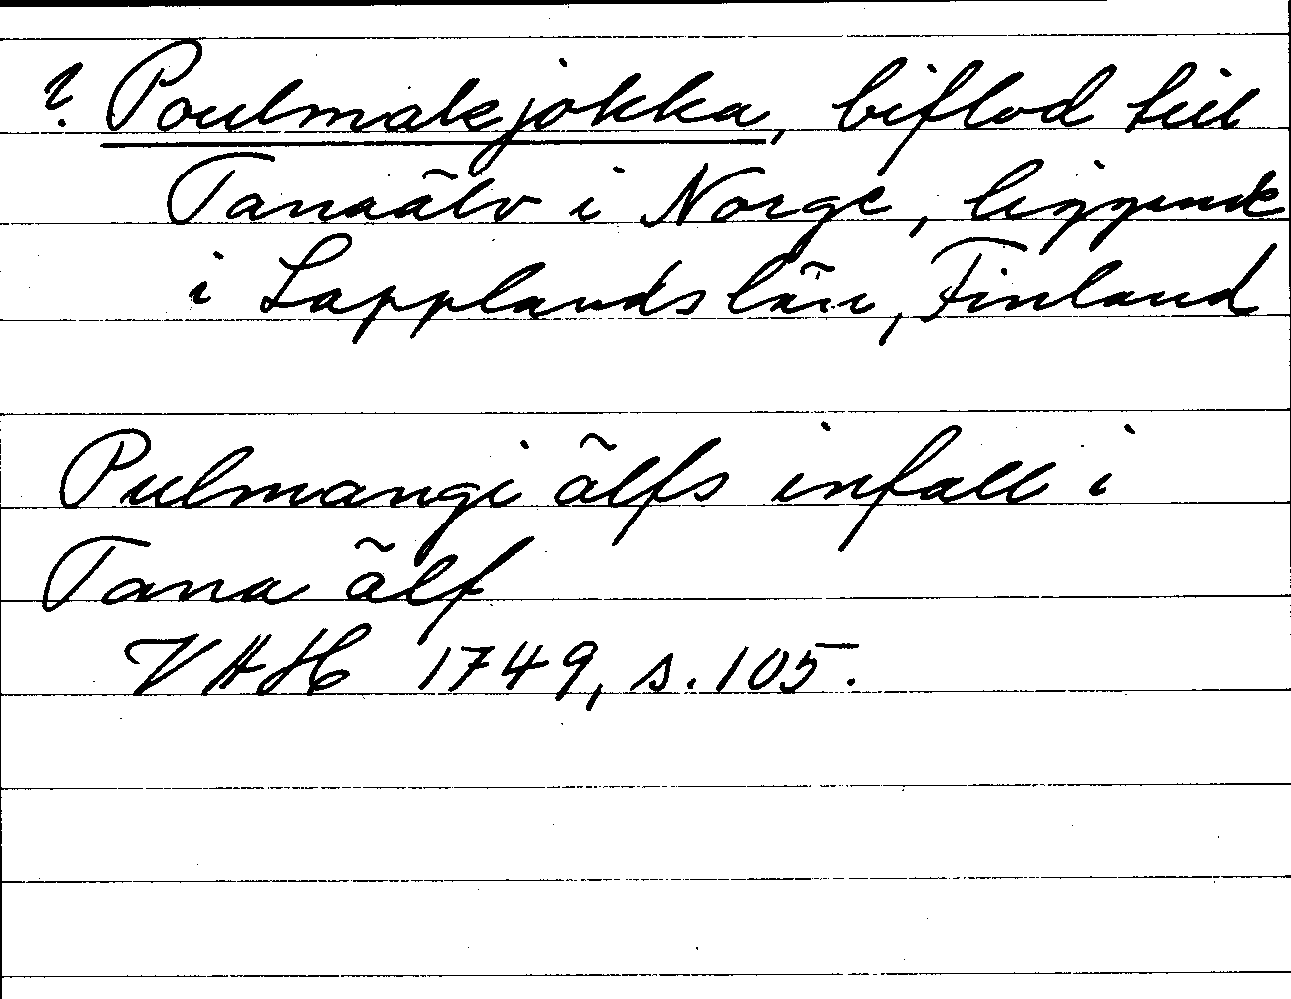 ? Poulmakjokka, biflod till
Tanaälv i Norge, liggande
i Lapplands län, Finland
Pulmangi älfs infall i
Tana älf
VAH 1749, s. 105.